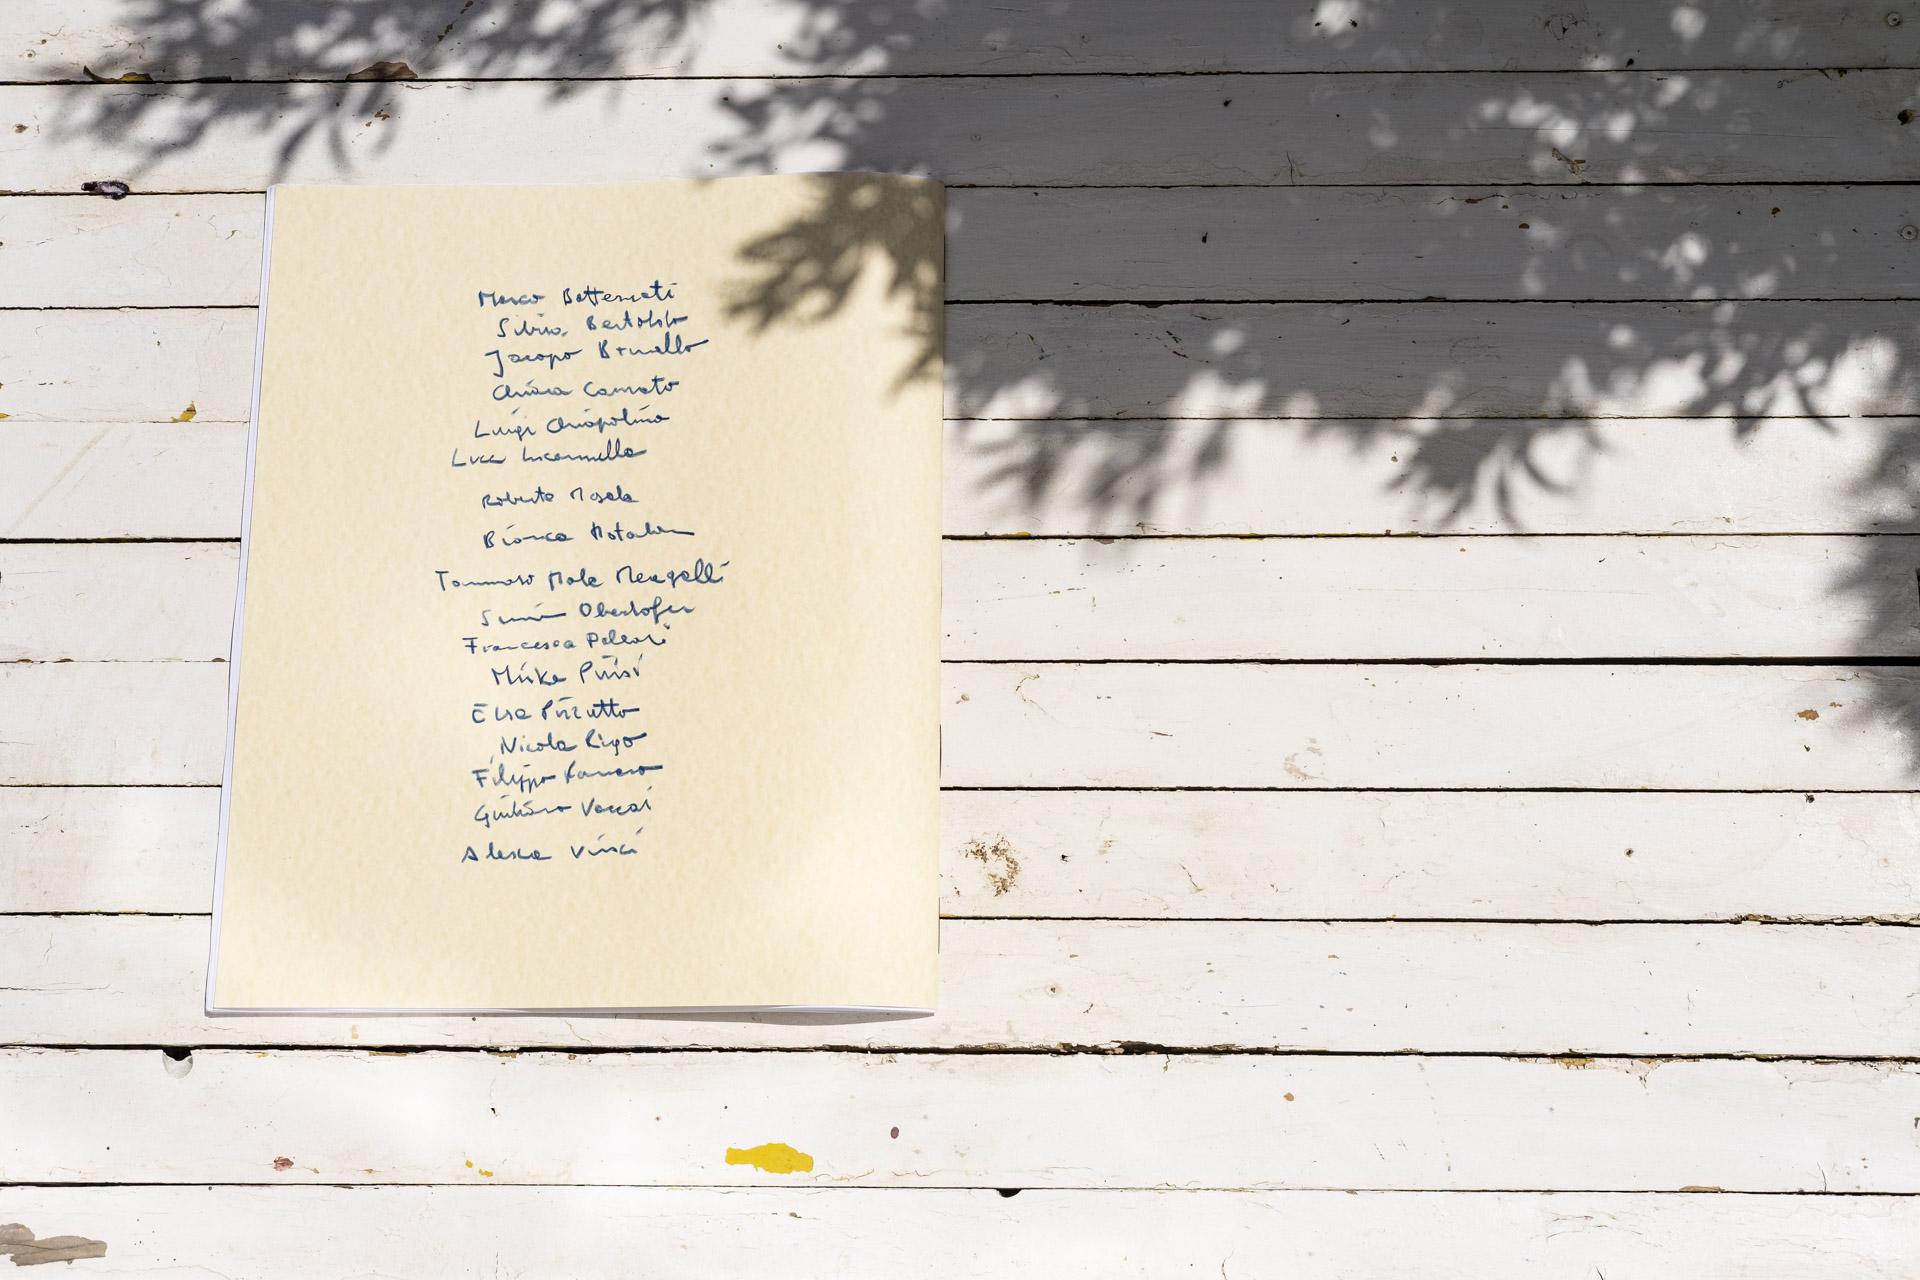 Marco Bettensoti
Silvia Bertoldo
Jacopo Brunello
Chiara Camato
Luigi Crispolino
Luca Incannella
Roberta Mosele
Bianca
Tommaso Mola Meregalli
Simon Oberhofer
Francesca Pellari
Mirka Pirisi
Elsa Pizzutto
Nicola Rigo
Filippo
Giuliano Vaccai
Alessia Vinci